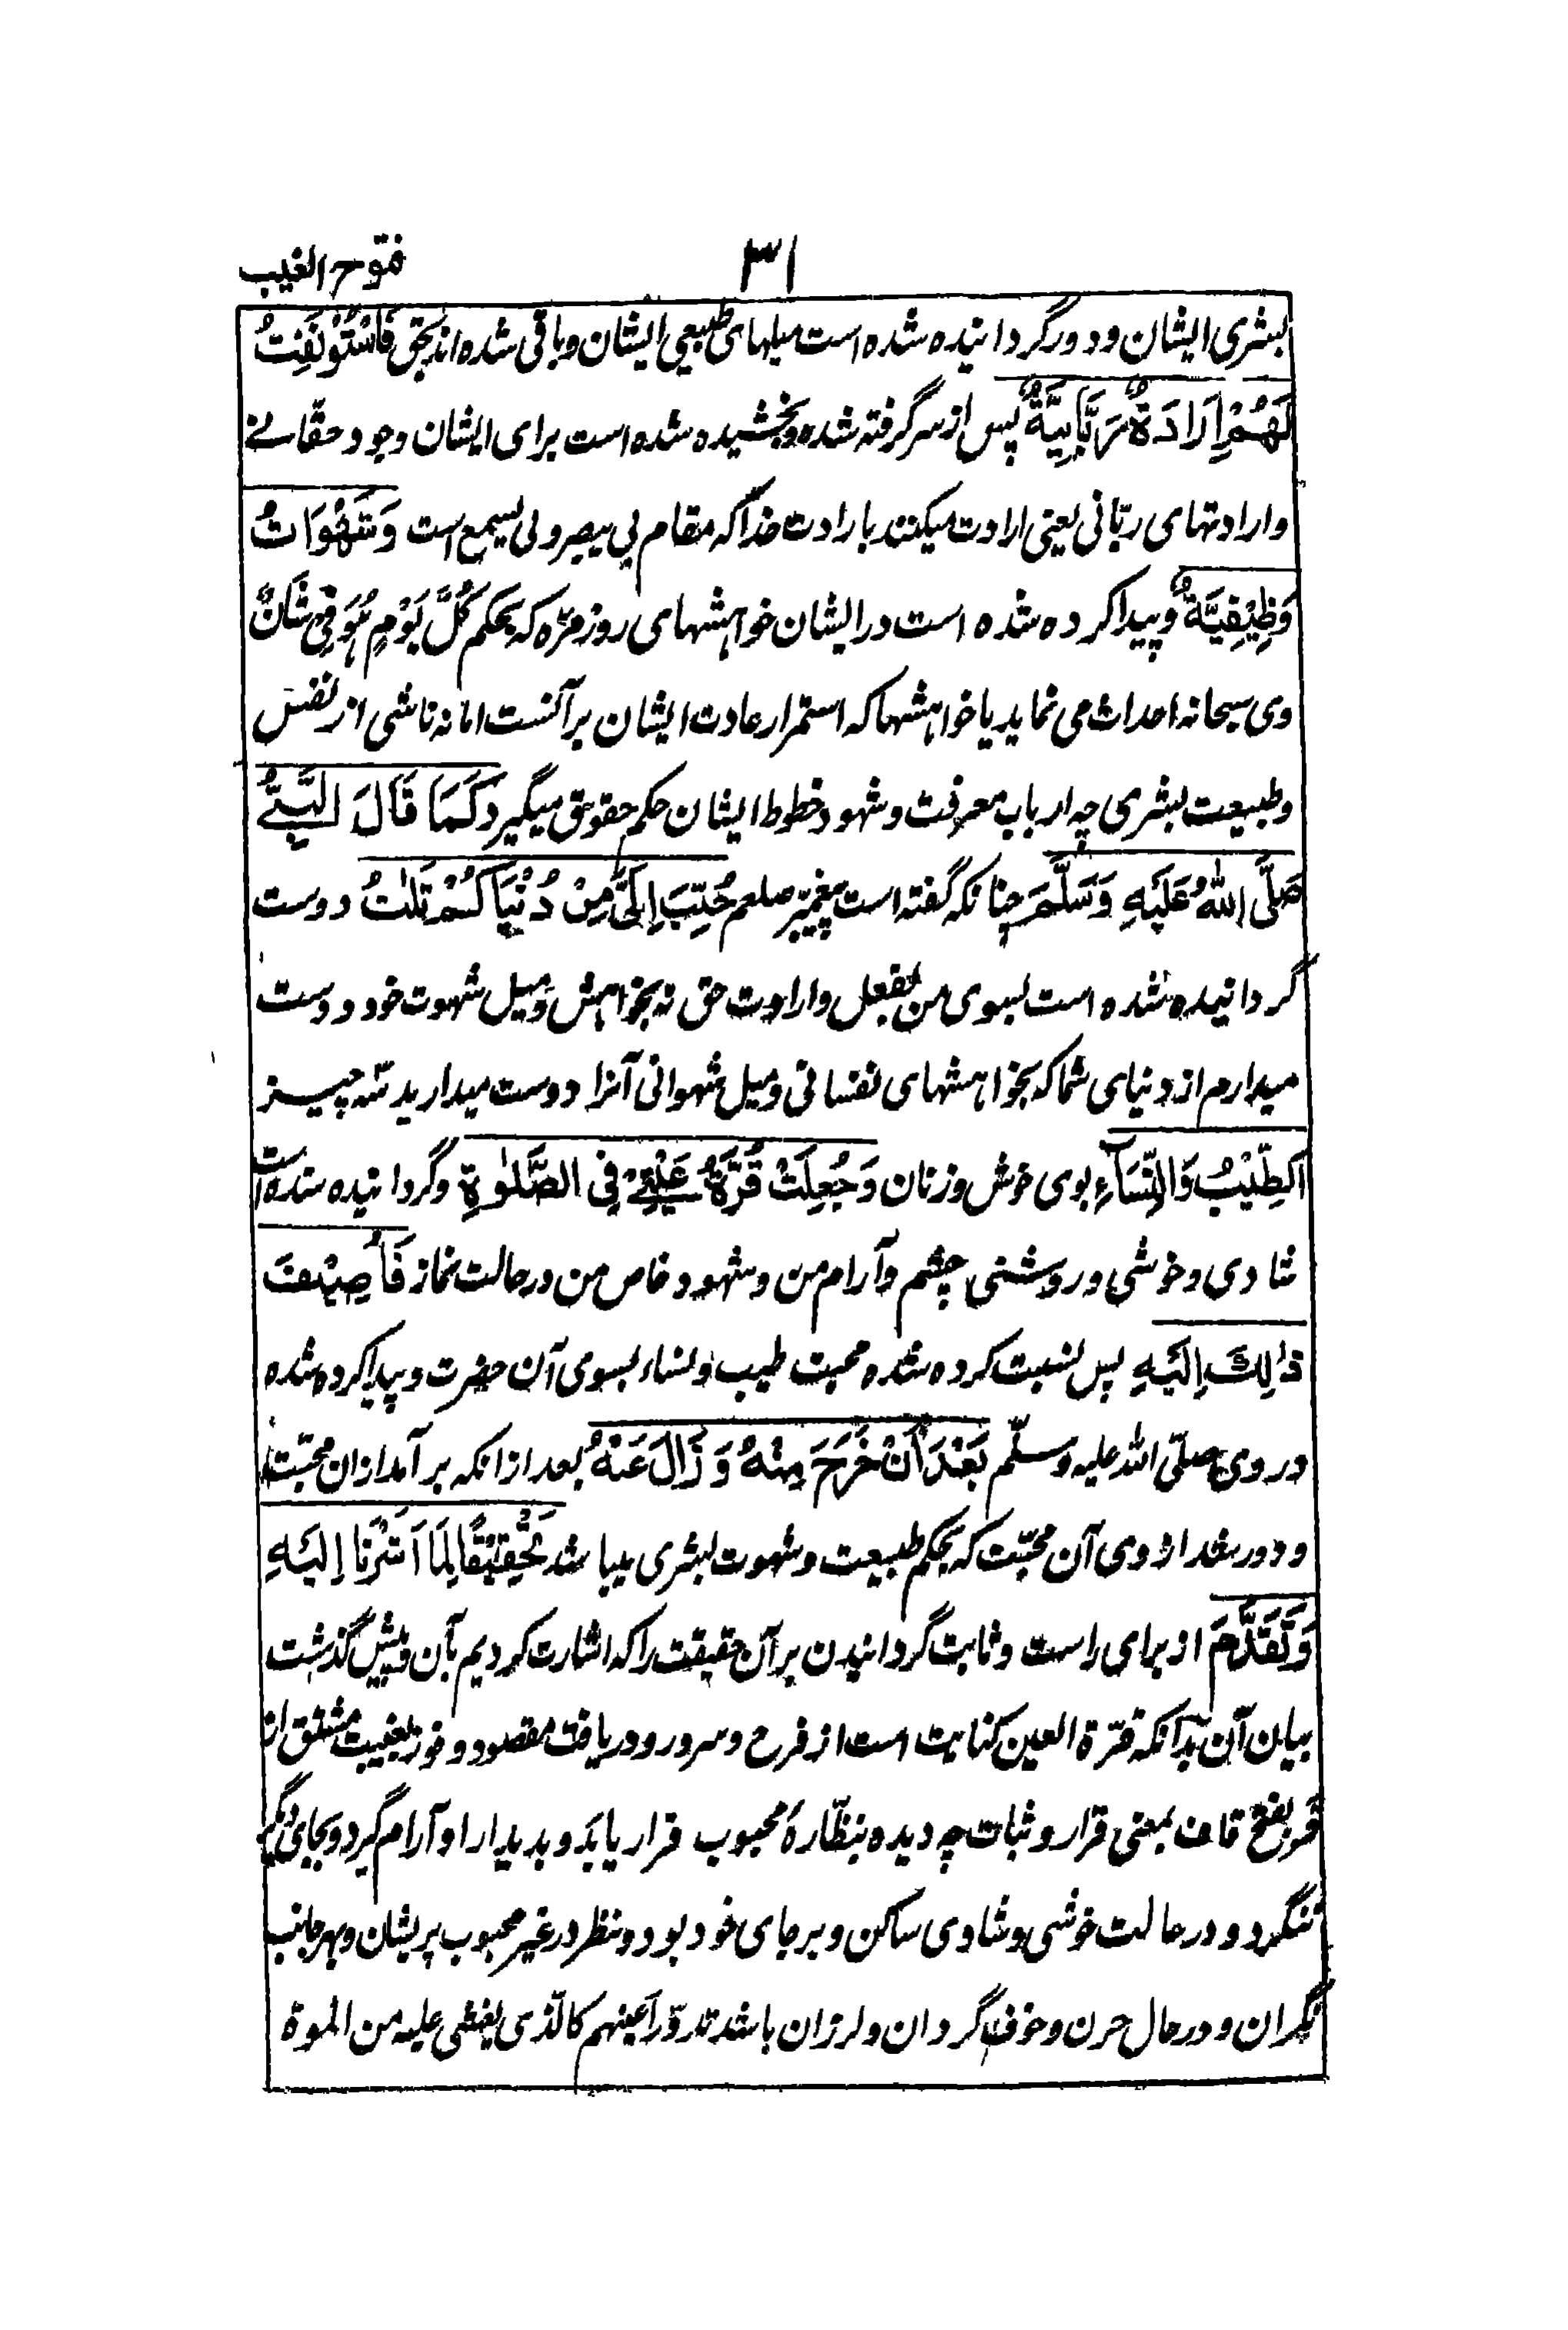 ۳۱
فتوح الغیب
بشری ایشان و دور گردانیده شده است میلهای طبیعی ایشان و باقی شده اند بحق فَاسْتُوْنِفَتْ
لَهُمْ اِرَادَةٌ رَبَّانِيَّةٌ پس از سر گرفته شده و بخشیده شده است برای ایشان وجود حقانے
و ارادتهای ربّانی یعنی ارادت میکنند بارادت خدا که مقام بی یبصر و لی یسمع است وَشَهْوَاتٌ
وَظِيْفِيَّةٌ و پیدا کرده شده است در ایشان خواهشهای روزمرّه که بحکم كُلَّ يَوْمٍ هُوَ فِيْ شَانٌ
وی سبحانه احداث می نماید یا خواهشها که استمرار عادت ایشان بر آنست اما نه ناشی از نفس
و طبیعت بشری چه ارباب معرفت و شهود خطوط ایشان حکم حقوق میگیرد كَمَا قَالَ النَّبِيُّ
صَلَّى اللهُ عَلَيْهِ وَسَلَّمَ چنانکه گفته است پیغمبر صلعم حُبِّبَ اِلَيَّ مِنْ دُنْيَاكُمْ ثَلٰثٌ دوست
گردانیده شده است بسوی من بفعل و ارادت حق نه بخواهش و میل شهوت خود دوست
میدارم از دنیای شما که بخواهشهای نفسانی و میل شهوانی آنرا دوست میدارید سه چیز
اَلطِّيْبُ وَالنِّسَآءُ بوی خوش و زنان وَجُعِلَتْ قُرَّةُ عَيْنِيْ فِي الصَّلٰوةِ و گردانیده شده است
شادی و خوشی و روشنی چشم و آرام من و شهود خاص من در حالت نماز فَاُضِيْفَ
ذٰلِكَ اِلَيْهِ پس نسبت کرده شده محبت طیب و نساء بسوی آن حضرت و پیدا کرده شده
در وی صلّی الله علیه وسلّم بَعْدَ اَنْ خَرَجَ مِنْهُ وَزَالَ عَنْهُ بعد از انکه بر آمد ازان محبّت
و دور شد از وی آن محبّت که بحکم طبیعت و شهوت بشری میباشد تَحْقِيْقًا لِمَا اَشَرْنَا اِلَيْهِ
وَتَقَدَّمَ از برای راست و ثابت گردانیدن بر آن حقیقت را که اشارت کردیم بآن و پیش گذشت
بیان آن بدانکه قرّة العین کنایت است از فرح و سرور و دریافت مقصود و فوز بغیت مشتق از
قر بفتح قاف بمعنی قرار و ثبات چه دیده بنظّارهٔ محبوب قرار یابد و بدیدار او آرام گیرد و بجای دیگر
ننگرد و در حالت خوشی و شادی ساکن و بر جای خود بود و نظر در غیر محبوب پریشان و بهر جانب
نگران و در حال حزن و خوف گردان و لرزان باشد تدور اعینهم کالّذی یغشی علیه من الموة